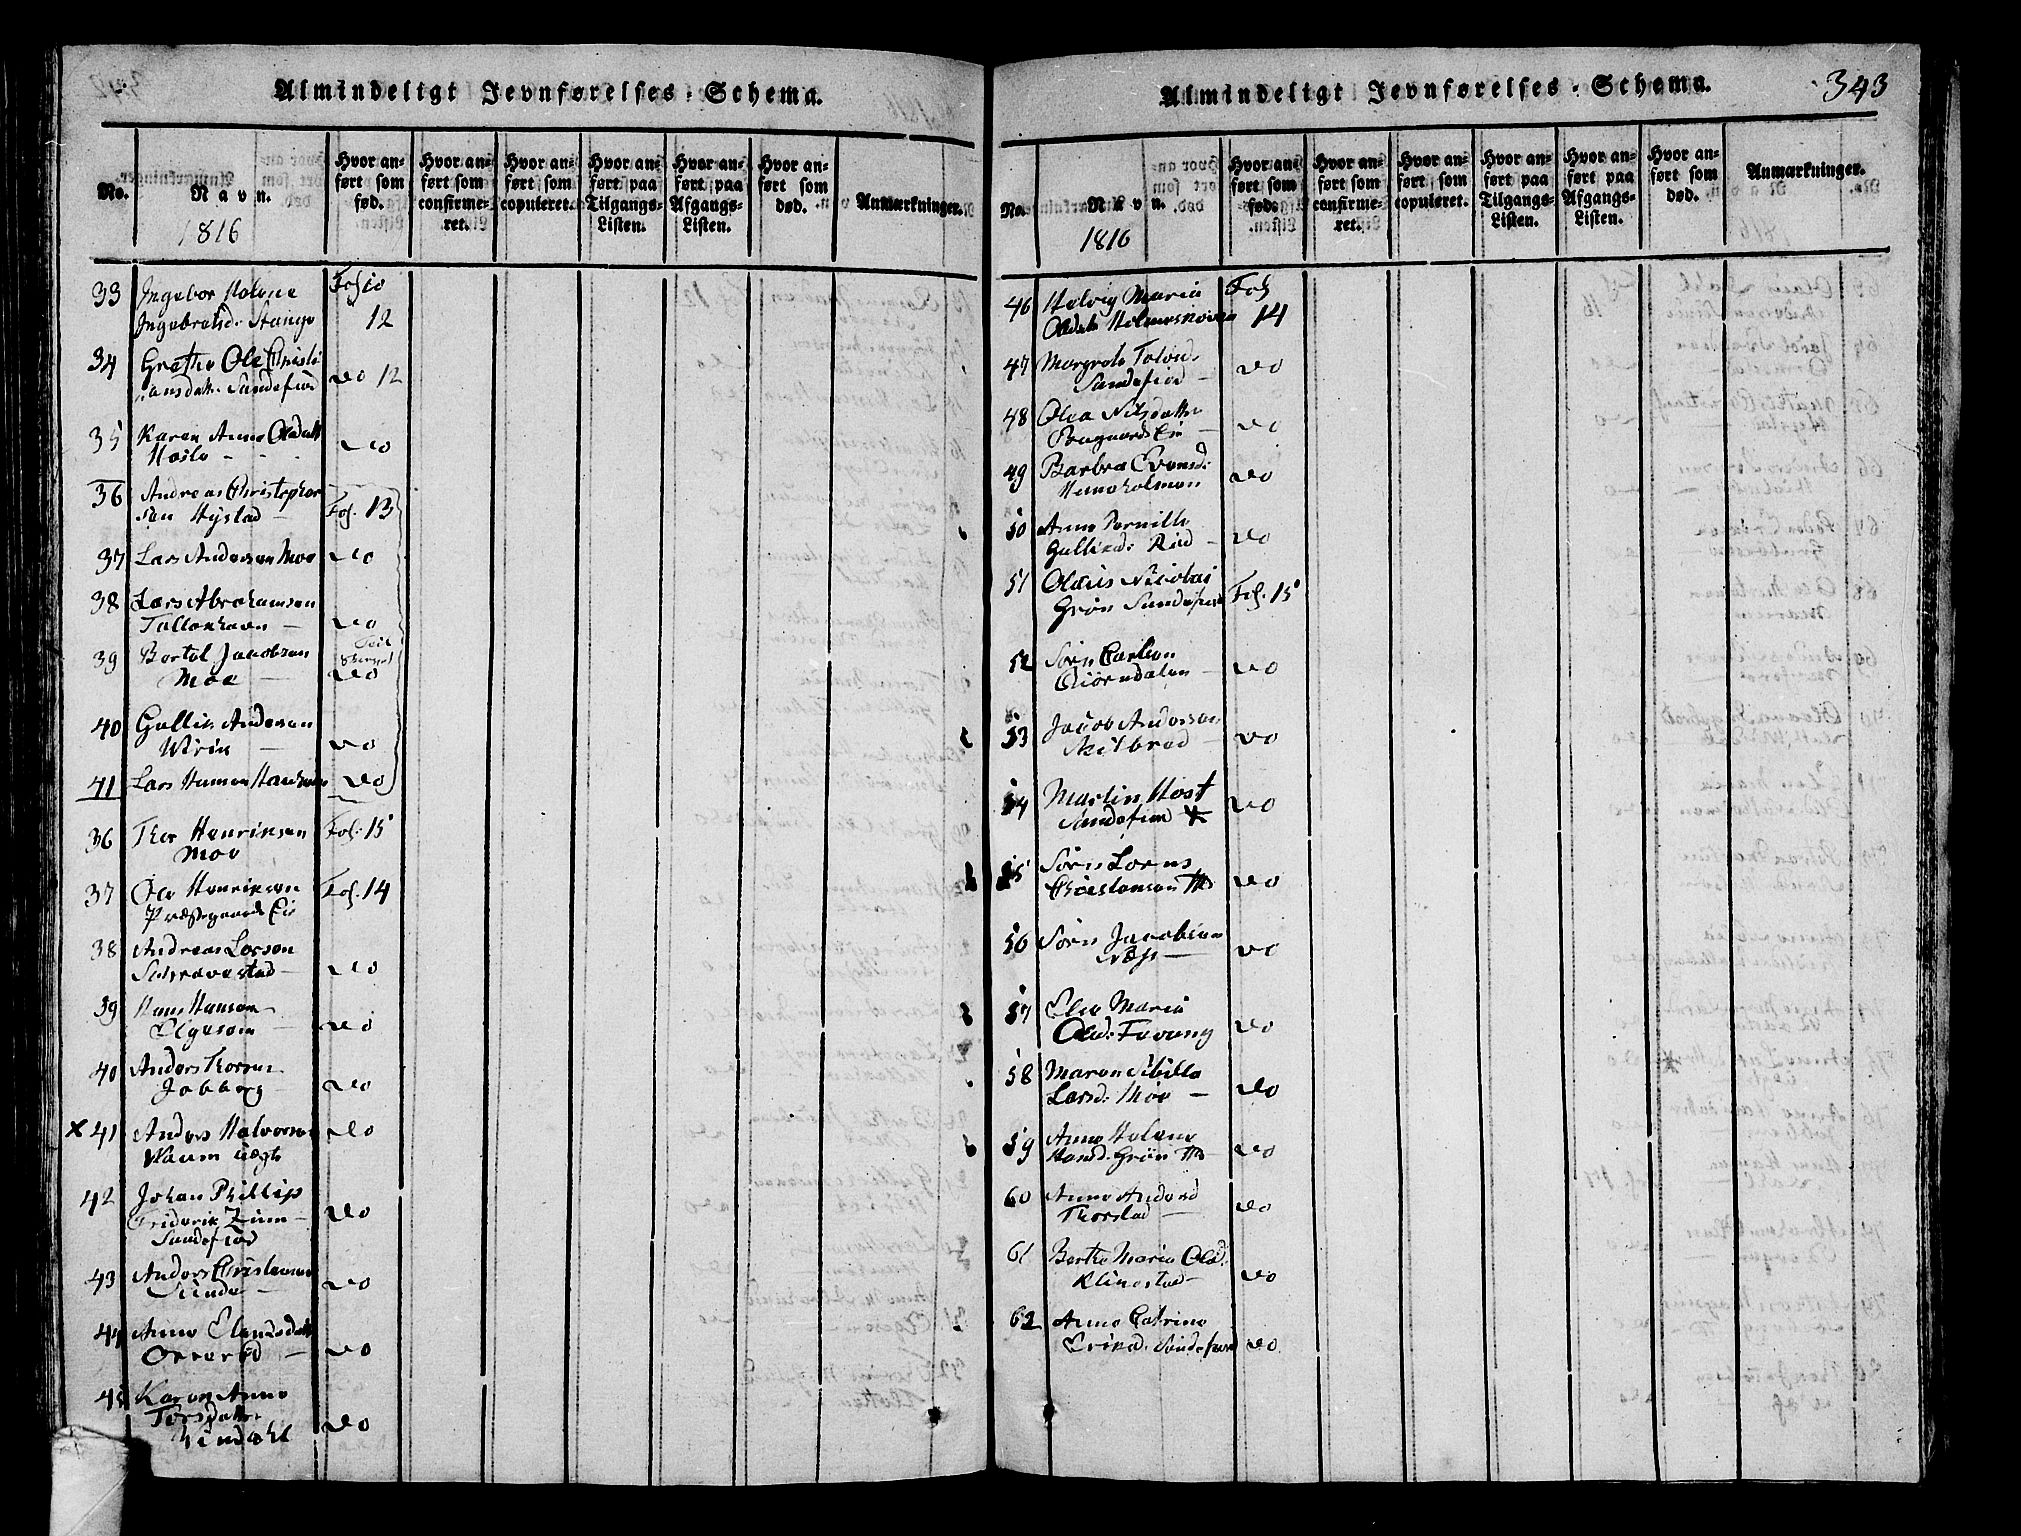 Almindeligt Jevnførelses-Schema.
No.
Navn.
Hvor anført som fød.
Hvor anført som confirmeret.
Hvor anført som copuleret.
Hvor anført paa Tilgangs-Listen.
Hvor anført paa Afgangs-Listen.
Hvor anført som død.
Anmærkninger.
1816
33 Ingebor Helene Fol 10
Ingebretsd: Stange 12
34 Grethe Ole Christi
ansdatt: Sandefiord do 12
35 Karen Anne Olsdatt
Hasle do
36 Andreas Christopher
sen Hystad Fol. 13
37 Lars Andersen Moe do
38 Lars Abrahamsen
Tallakshavn do
39 Bertel Jacobsen
Moe do
40 Gullik Andersen
Wirik do
41 Lars Hansen do
36 Thor Henriksen Fol. 15
Moe
37 Ole Henriksen Fol. 14
Præstegaards Eie
38 Andreas Larsen
Schravestad do
39 Hans Hansen
Elgesem do
40 Anders Thorsen
Jobberg do
x 41 Anders Halvorsen do
42 Johan Phillip
Friderik Zinn do
Sandefiord
43 Anders Christensen
Sunde do
44 Anne Elandsdatt
do
45 Karen Anne
Torsdatter
Lindahl do
Almindeligt Jevnførelses-Schema. 343
No.
Navn.
Hvor anført som fød.
Hvor anført som confirmeret.
Hvor anført som copuleret.
Hvor anført paa Tilgangs-Listen.
Hvor anført paa Afgangs-Listen.
Hvor anført som død.
Anmærkninger.
1816
46 Helvig Maria Fol
14
47 Margrete
Sandefiord do
48 Olea Nilsdatter
Eie do
49 Barbra Evensd:
do
50 Anne Pernille
Gulliksd: do
51 Olaus Nicolai
Grøn Sandefiord Fol. 15
52 Sørn Carlsen
do
53 Jacob Andersen
Skilbred do
54 Martin Høst
Sandefiord do
55 Sørn Lorns
Christensen do
56 Sørn Jacobsen
Næss do
57 Else Maria
Olsd: Fevang do
58 Maren Sibille
Larsd: Moe do
59 Anne Helene
Hansd. Grøn do
60 Anne Andersd
Thorstad do
61 Berthe Maria Olsd:
Klinestad do
62 Anne Catrine
Eriksd. Sandefiord do